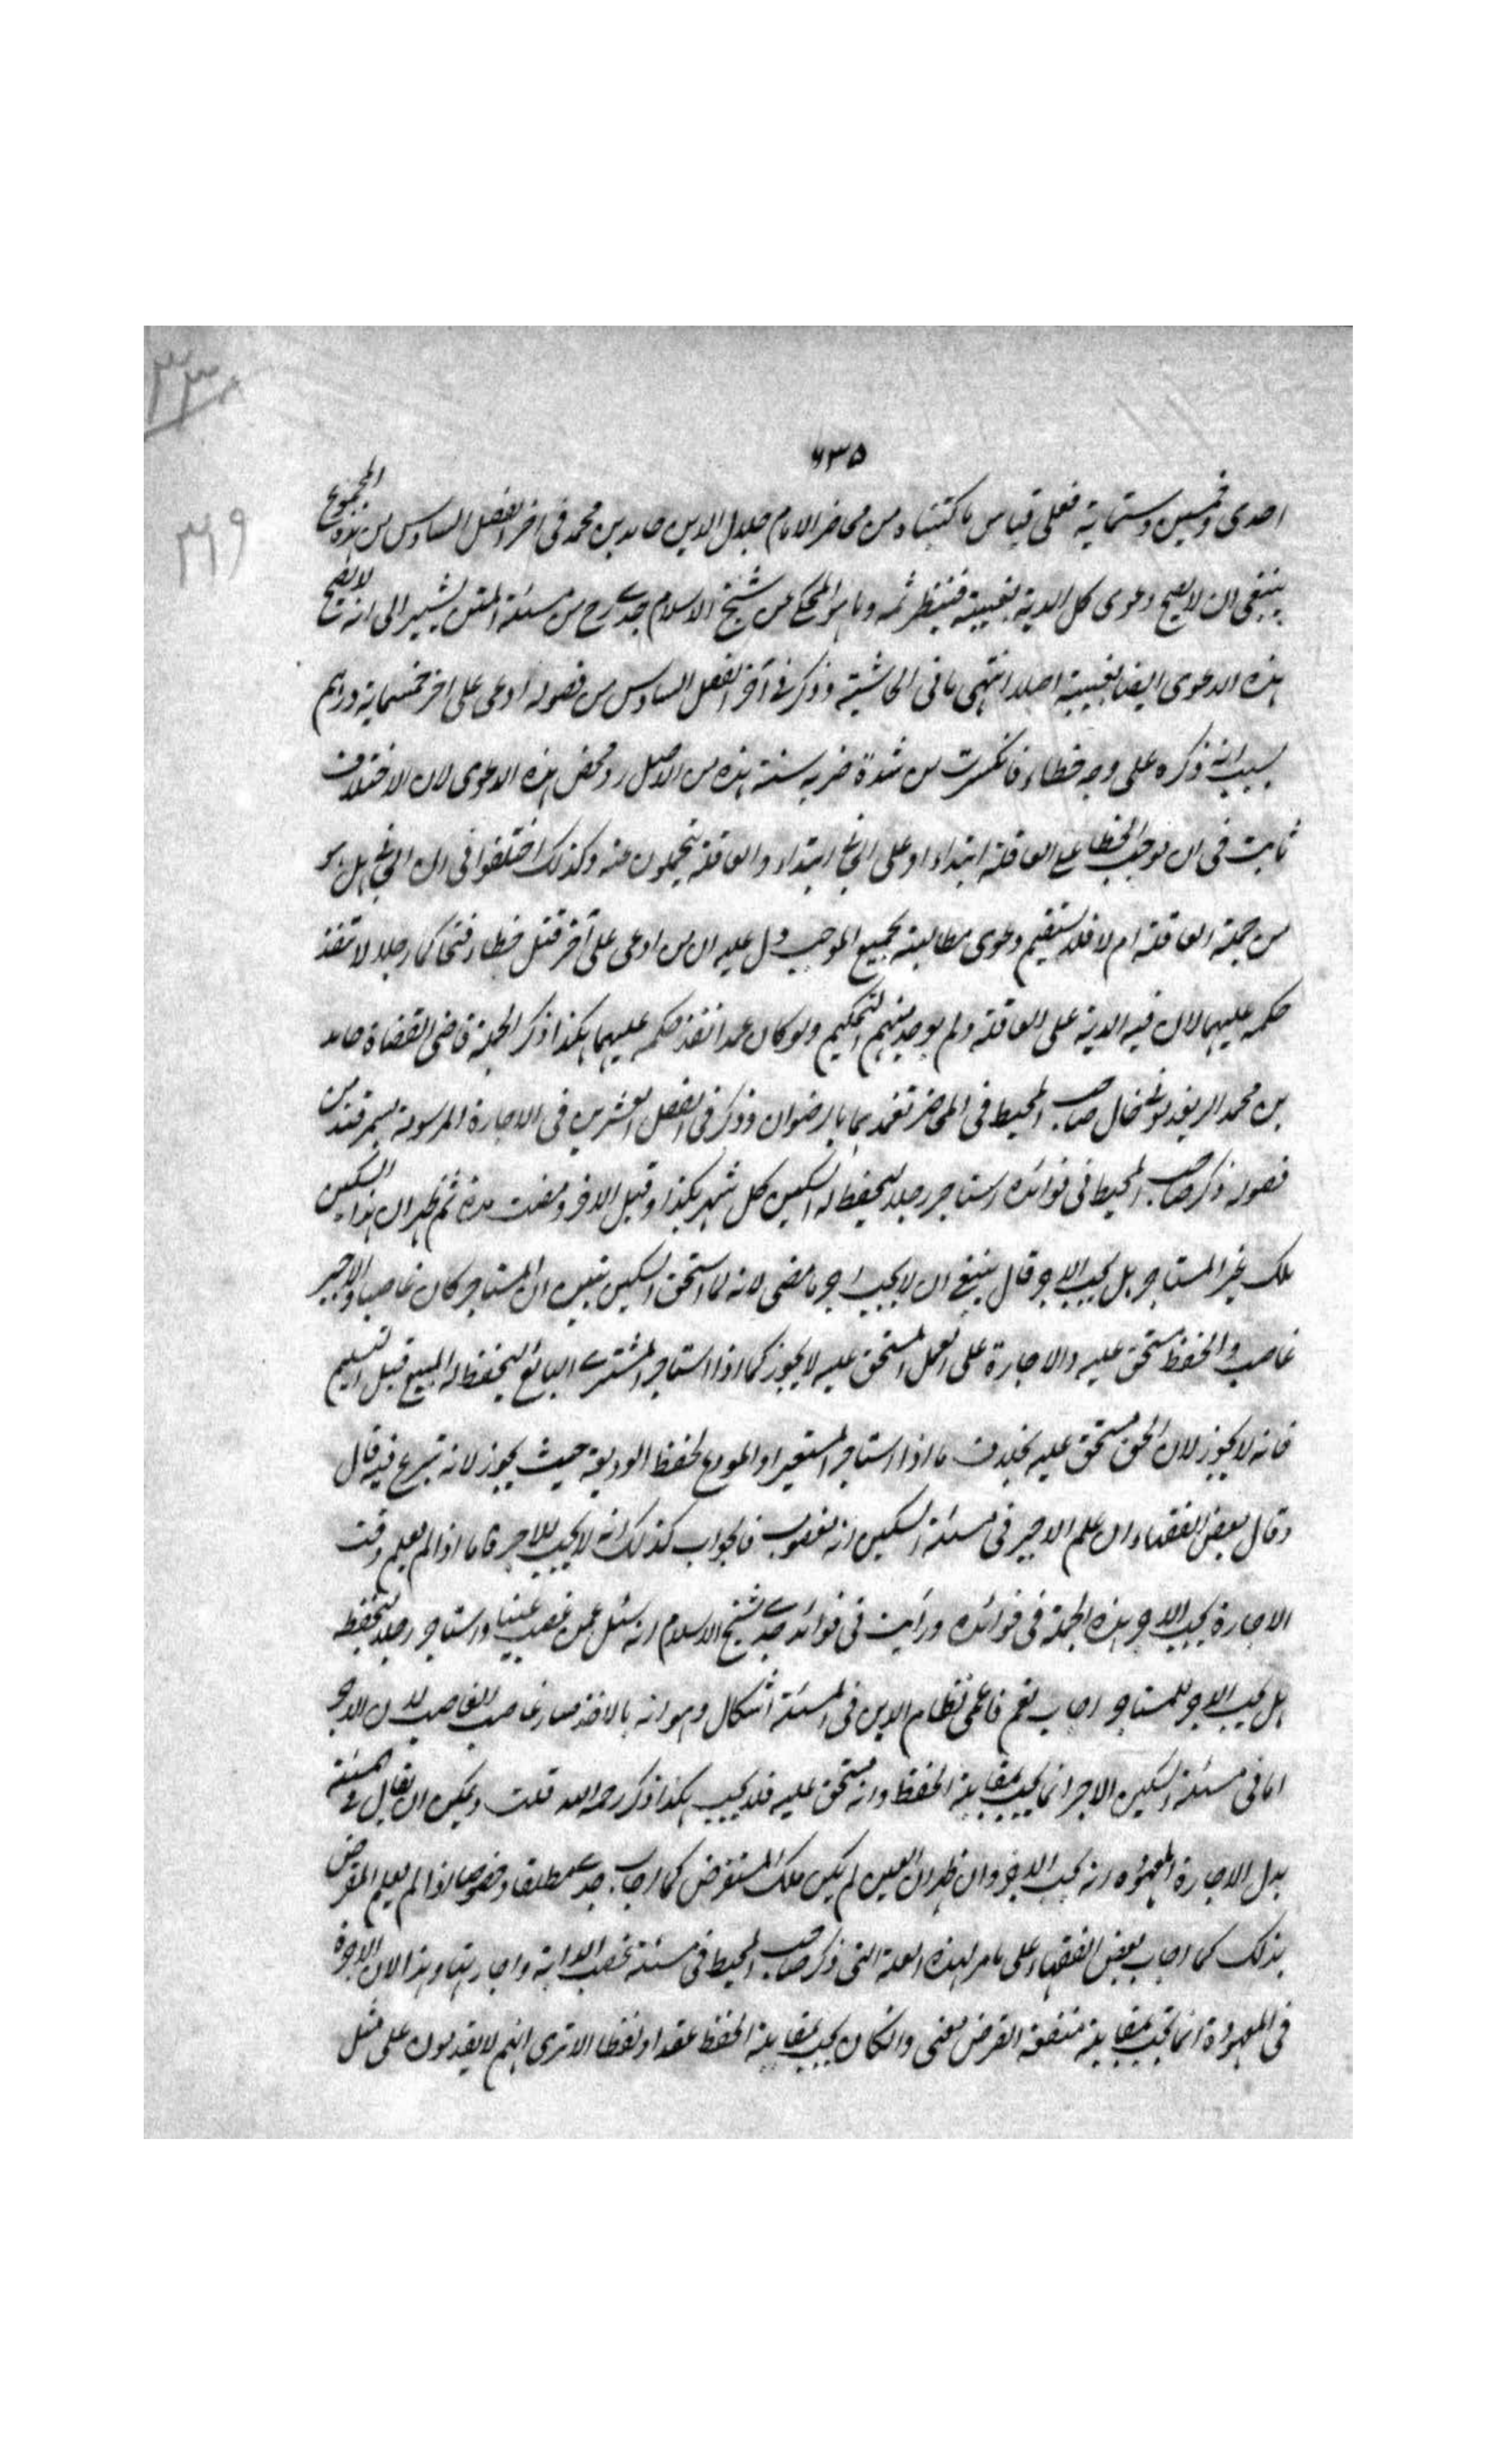 ۳۳۰
۶۳۵
۳۶۹
احدى وخمسين وستماية فعلى قياس ما كتبناه من محاضر الامام جلال الدين حامد بن محمد فى اخر الفصل السادس من هذه المجموع
ينبغى ان لا يصح دعوى كل الدية بغيبته فينظر ثمه وما هو المحكى عن شيخ الاسلام جدى رح من مسئلة المتن يشير الى انه لا يصح
هذه الدعوى ايضا بغيبته اصلا انتهى ما فى الحاشية وذكر فى آخر الفصل السادس من فصوله ادعى على اخر خمسماية دراهم
بسبب انه ذكره على وجه خطاء فانكسرت من شدة ضربه سنة هذه من الاصل رد محض هذه الدعوى لان الاختلاف
ثابت فى ان موجب الخطا على العاقلة ابتداء او على الجانى ابتداء والعاقلة يتحملون منه وكذلك اختلفوا فى ان الجانى هل هو
من جملة العاقلة ام لا فلا يستقيم دعوى مطالبته بجميع الموجب دل عليه ان من ادعى على آخر قتل خطاء فتحاكما رجلا لا تنفذ
حكمه عليهما لان فيه الدية على العاقلة ولم يوجد منهم التحكيم ولو كان عمدا نفذ حكمه عليهما هكذا ذكر الجملة قاضى القضاة حامد
بن محمد الريغدمونى خال صاحب المحيط فى المحاضر تغمدهما بالرضوان وذكر فى الفصل العشرين فى الاجارة المرسومة بسمرقند من
فصوله ذكر صاحب المحيط فى فوائده استاجر رجلا ليحفظ له السكين كل شهر بكذا وقبل الاخر ومضت مدة ثم ظهر ان هذا السكين
ملك غير المستاجر هل يجب الاجر قال ينبغى ان لا يجب اجر ما مضى لانه لما استحق السكين تبين ان المستاجر كان غاصبا والاجير
غاصب والحفظ مستحق عليه والاجارة على العمل المستحق عليه لا يجوز كما اذا استاجر المشترى البائع ليحفظ له المبيع قبل التسليم
فانه لا يجوز لان الحق مستحق عليه بخلاف ما اذا استاجر المستعير او المودع لحفظ الوديعة حيث يجوز لانه تبرع فيه قال
وقال بعض الفقهاء ان علم الاجير فى مسئلة السكين انه مغصوب فالجواب كذلك انه لا يجب الاجر فاما اذا لم يعلم وقت
الاجارة يجب الاجر هذه الجملة فى فوائده ورأيت فى فوائد جدى شيخ الاسلام انه سئل عمن غصب عينا واستاجر رجلا ليحفظه
هل يجب الاجر للمستاجر اجاب نعم فاعمى نظام الدين فى المسئلة اشكال وهو انه بالاخذ صار غاصب الغاصب لان الاجر
اما فى مسئلة السكين الاجر انما يجب بمقابلة الحفظ وانه مستحق عليه فلا يجب هكذا ذكر رحمه الله قلت ويمكن ان يقال فى مسئلة
بدل الاجارة المعهودة انه يجب الاجر وان ظهر ان العين لم يكن ملك المستقرض كما اجاب جدى مطلقا وخصوصا اذا لم يعلم المقرض
بذلك كما اجاب بعض الفقهاء على ما مر لهذه العلة التى ذكر صاحب المحيط فى مسئلة غصب الدابة واجارتها وهذا لان الاجرة
فى المعهودة انما تجب بمقابلة منفعة القرض معنى وان كان يجب بمقابلة الحفظ عقدا ولفظا الا ترى انهم لا يقدمون على مثل